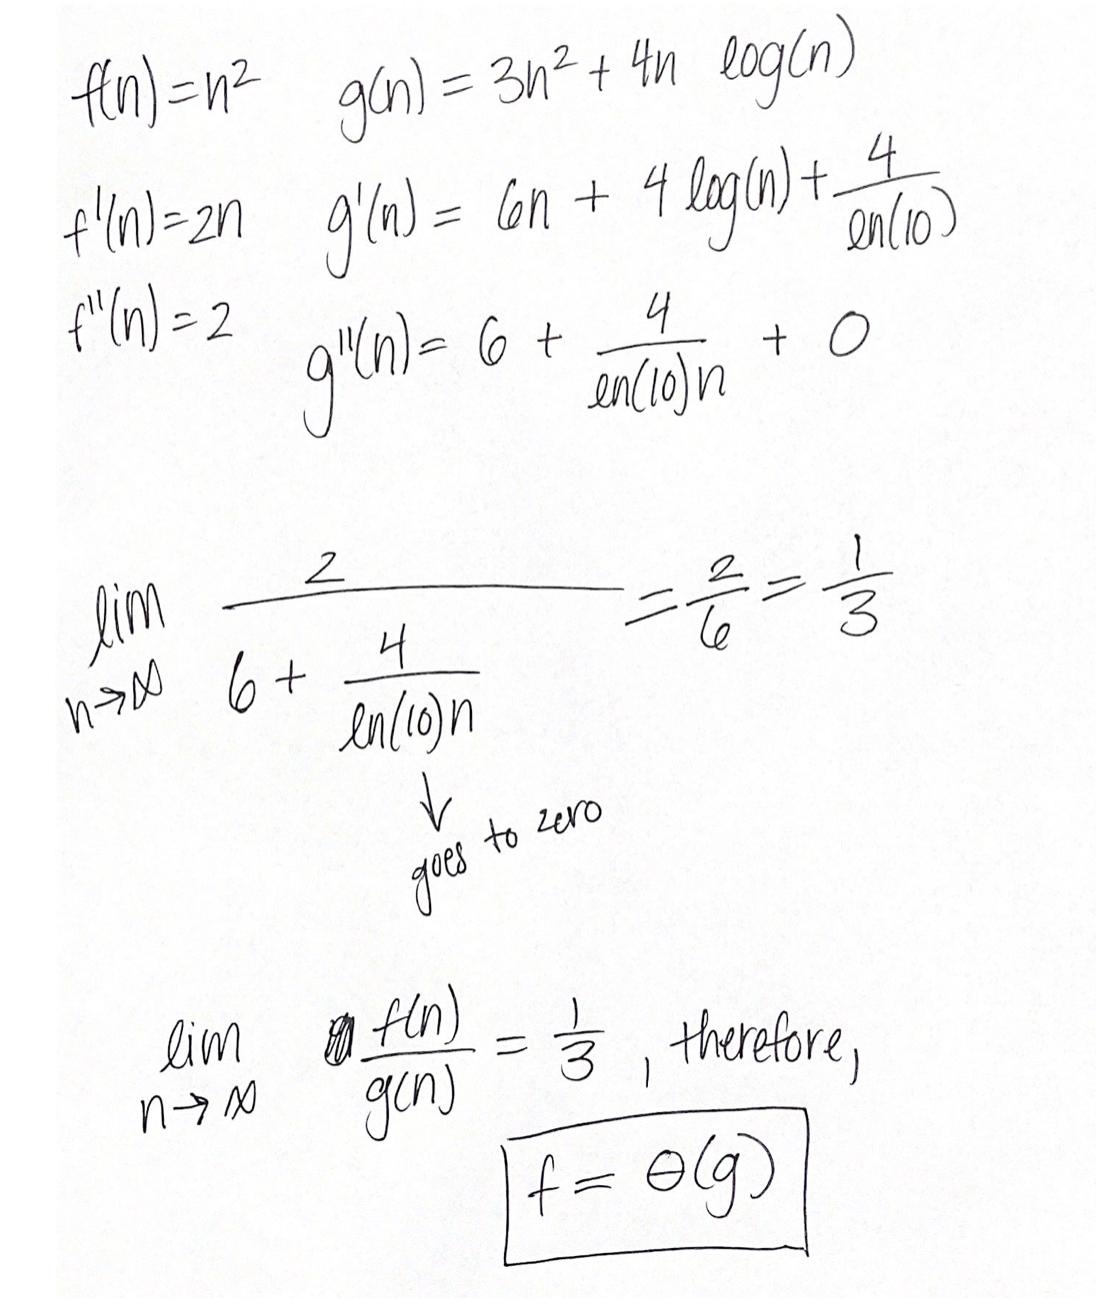 f(n) = n² g(n) = 3n² + 4n log(n)
f'(n) = 2n g'(n) = 6n + 4 log(n) + 4/ln(10)
f''(n) = 2 g''(n) = 6 + 4/(ln(10)n) + 0
lim n→∞ 2/(6 + 4/(ln(10)n)) = 2/6 = 1/3
↓
goes to zero
lim n→∞ f(n)/g(n) = 1/3 , therefore,
f = Θ(g)